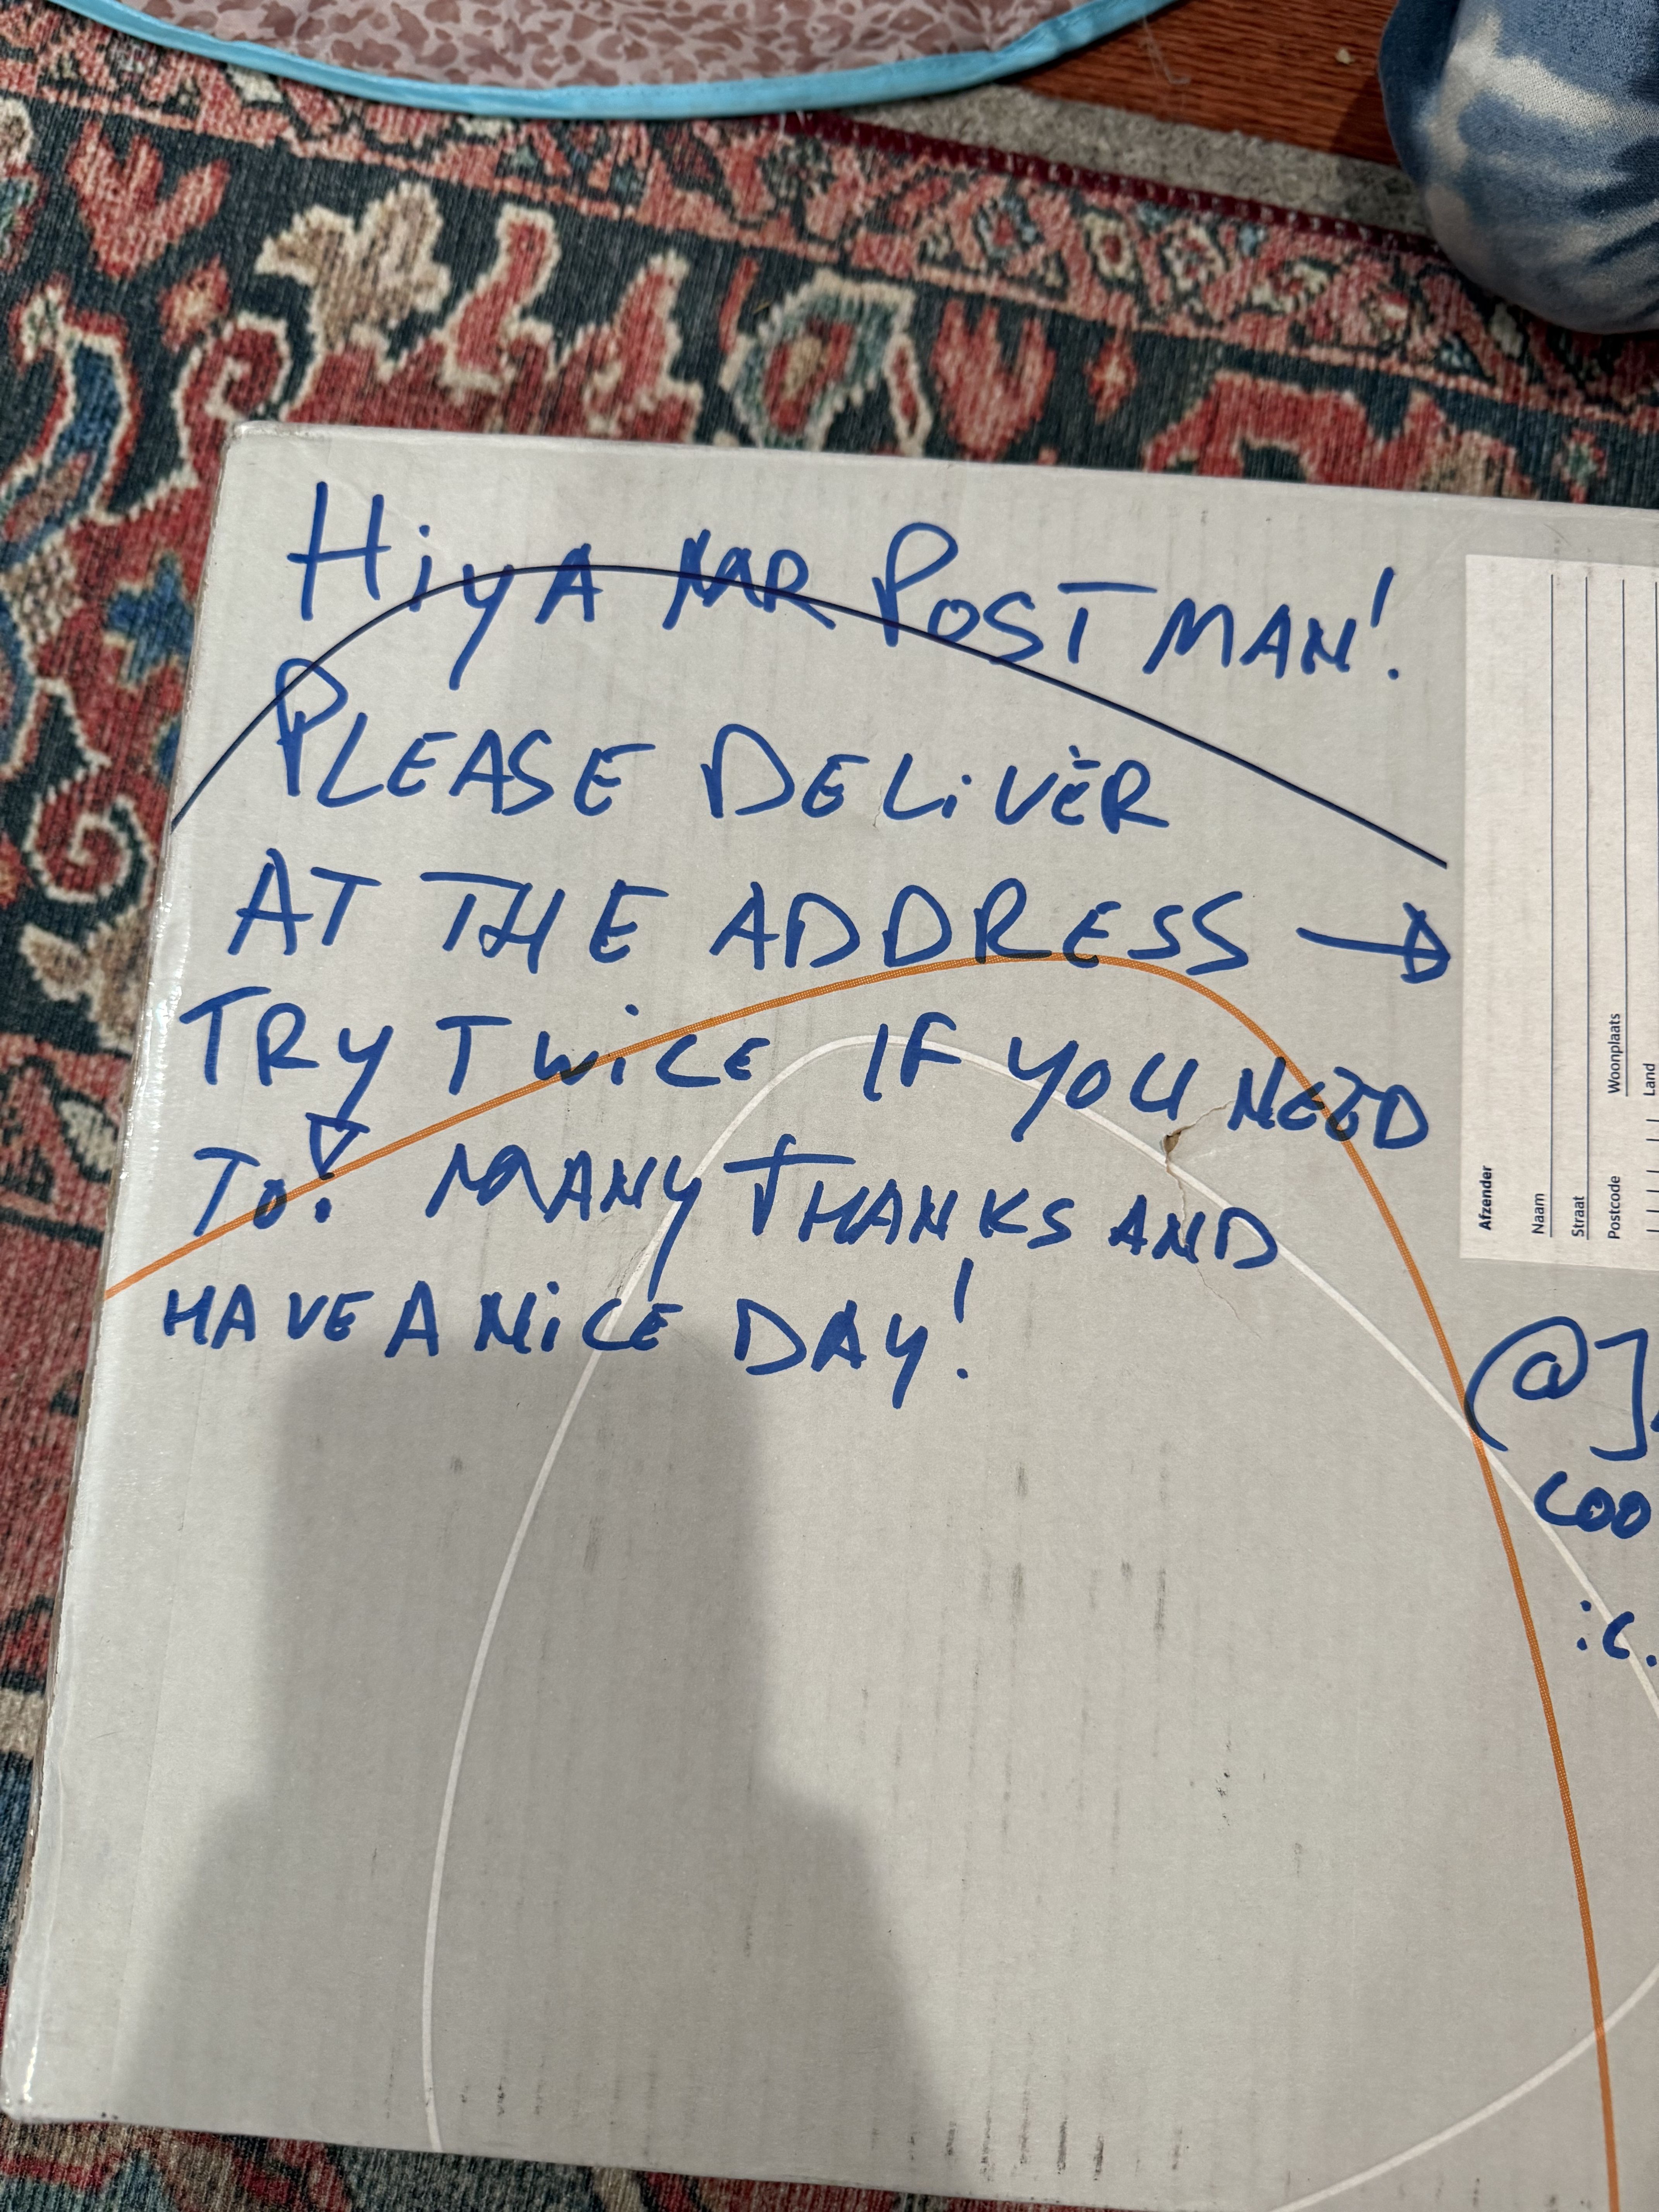 Hiya MR POSTMAN!
PLEASE DELiVER
AT THE ADDRESS →
TRY TWiCE IF YOU NEED
To! MANY THANKS AND
HAVE A NiCE DAY!
Afzender
Naam
Straat
Postcode Woonplaats
Land
(@]
COO
:c.